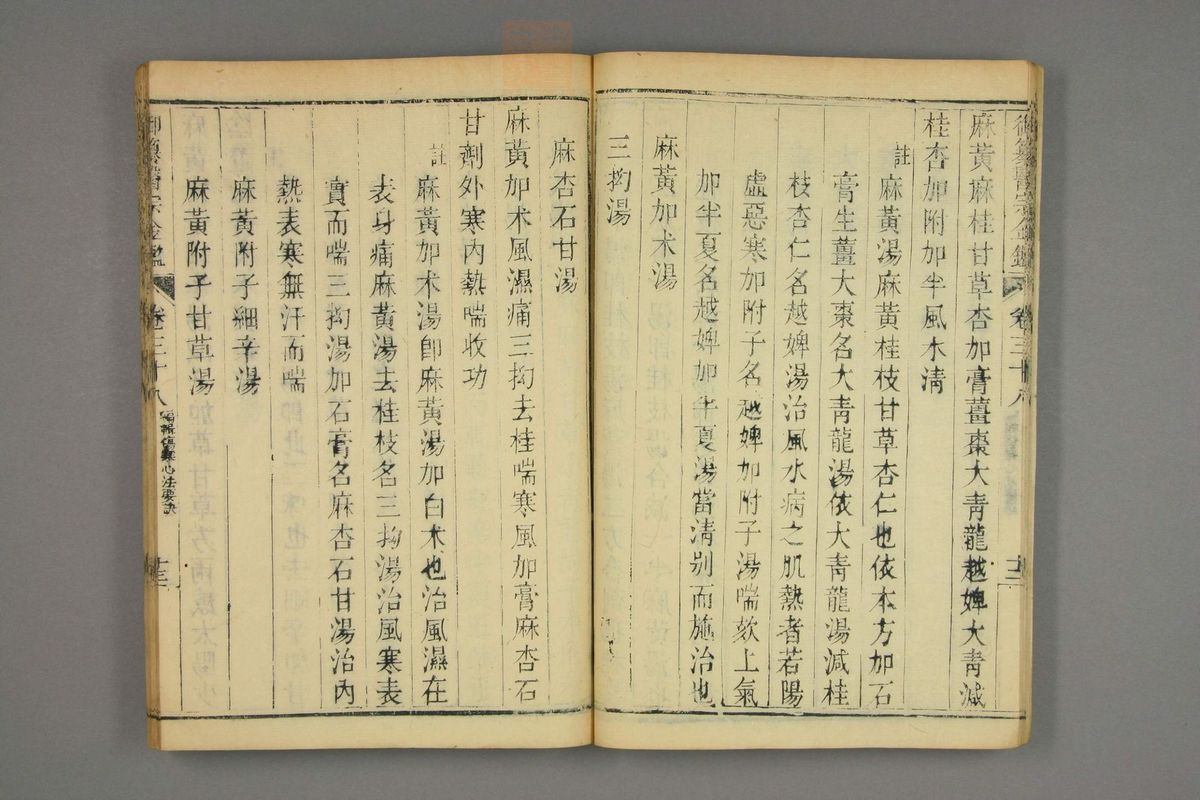 御纂醫宗金鑑 卷三十八 十二
麻黃麻桂甘草杏加膏薑棗大青龍越婢大青減
桂杏加附加半風水清
註
麻黃湯麻黃桂枝甘草杏仁也依本方加石
膏生薑大棗名大青龍湯依大青龍湯減桂
枝杏仁名越婢湯治風水病之肌熱者若陽
虛惡寒加附子名越婢加附子湯喘欬上氣
加半夏名越婢加半夏湯當清别而施治也
麻黃加术湯
三拘湯
麻杏石甘湯
麻黃加术風濕痛三拘去桂喘寒風加膏麻杏石
甘劑外寒內熱喘收功
註
麻黃加术湯卽麻黃湯加白术也治風濕在
表身痛麻黃湯去桂枝名三拘湯治風寒表
實而喘三拘湯加石膏名麻杏石甘湯治內
熱表寒無汗而喘
麻黃附子細辛湯
麻黃附子甘草湯
御纂醫宗金鑑 卷三十八 編輯傷寒心法要訣 十三